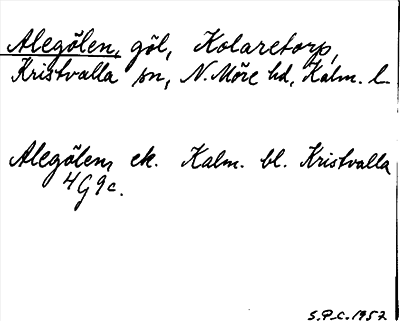 Alegölen, göl, Kolaretorp,
Kristvalla sn, N. Möre hd, Kalm. l.
Alegölen, ek. Kalm. bl. Kristvalla
4G9c.
S.P.C. 1957